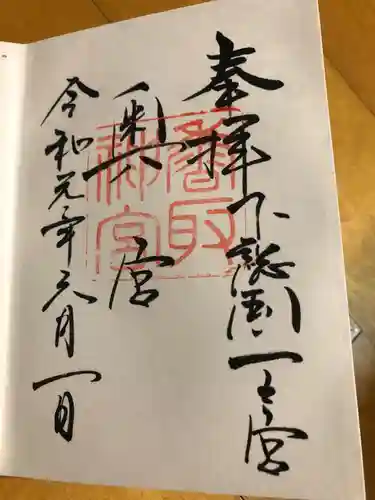 奉拝 下総国一之宮
宮
令和元年六月一日
香取
神宮